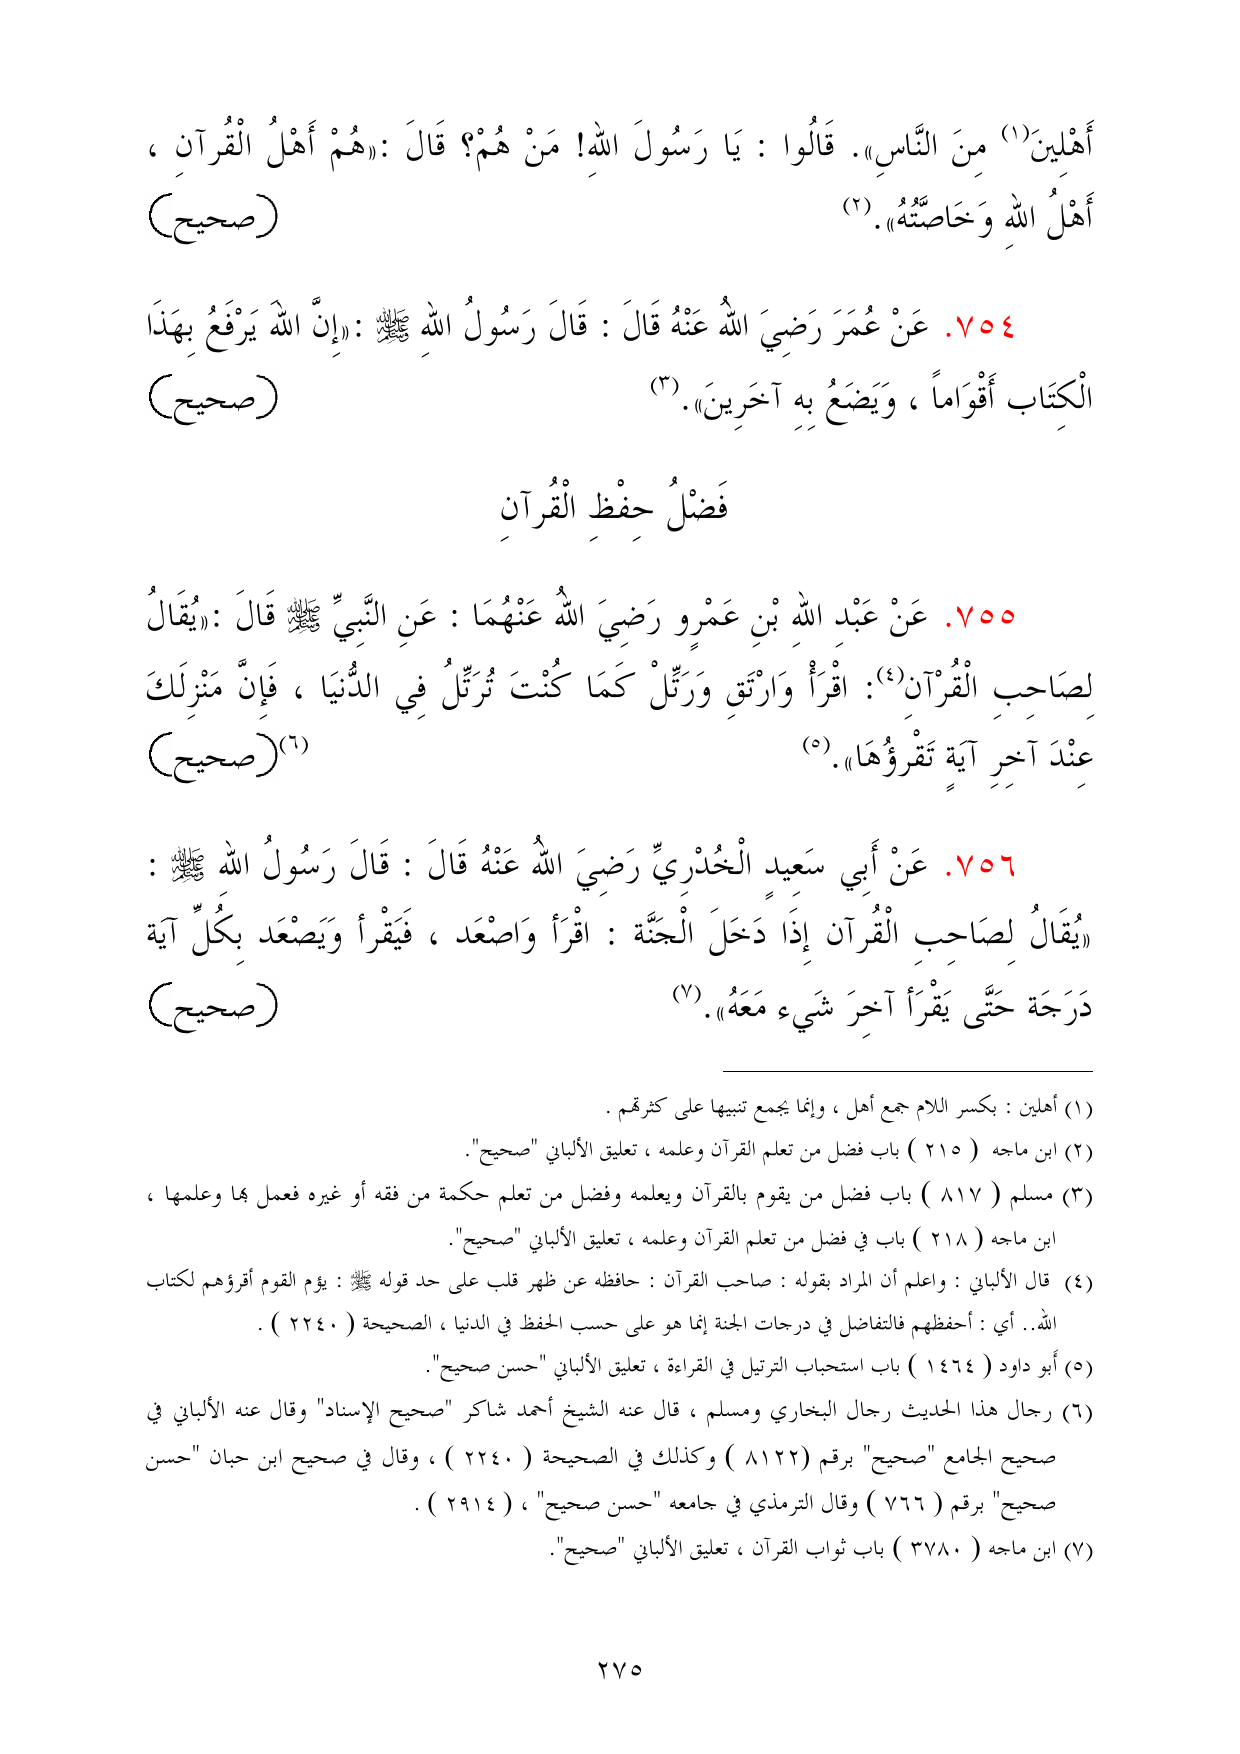 أَهْلِينَ(١) مِنَ النَّاسِ». قَالُوا : يَا رَسُولَ اللهِ! مَنْ هُمْ؟ قَالَ :«هُمْ أَهْلُ الْقُرآنِ ،
أَهْلُ اللهِ وَخَاصَّتُهُ».(٢) (صحيح)
٧٥٤. عَنْ عُمَرَ رَضِيَ اللهُ عَنْهُ قَالَ : قَالَ رَسُولُ اللهِ ﷺ :«إِنَّ اللهَ يَرْفَعُ بِهَذَا
الْكِتَاب أَقْوَاماً ، وَيَضَعُ بِهِ آخَرِينَ».(٣) (صحيح)
فَضْلُ حِفْظِ الْقُرآنِ
٧٥٥. عَنْ عَبْدِ اللهِ بْنِ عَمْرٍو رَضِيَ اللهُ عَنْهُمَا : عَنِ النَّبِيِّ ﷺ قَالَ :«يُقَالُ
لِصَاحِبِ الْقُرْآنِ(٤): اقْرَأْ وَارْتَقِ وَرَتِّلْ كَمَا كُنْتَ تُرَتِّلُ فِي الدُّنْيَا ، فَإِنَّ مَنْزِلَكَ
عِنْدَ آخِرِ آيَةٍ تَقْرؤُهَا».(٥) (صحيح)(٦)
٧٥٦. عَنْ أَبِي سَعِيدٍ الْخُدْرِيِّ رَضِيَ اللهُ عَنْهُ قَالَ : قَالَ رَسُولُ اللهِ ﷺ :
«يُقَالُ لِصَاحِبِ الْقُرآن إِذَا دَخَلَ الْجَنَّة : اقْرَأ وَاصْعَد ، فَيَقْرأ وَيَصْعَد بِكُلِّ آيَة
دَرَجَة حَتَّى يَقْرَأ آخِرَ شَيء مَعَهُ».(٧) (صحيح)
(١) أهلين : بكسر اللام جمع أهل ، وإنما يجمع تنبيها على كثرتهم .
(٢) ابن ماجه ( ٢١٥ ) باب فضل من تعلم القرآن وعلمه ، تعليق الألباني "صحيح".
(٣) مسلم ( ٨١٧ ) باب فضل من يقوم بالقرآن ويعلمه وفضل من تعلم حكمة من فقه أو غيره فعمل بها وعلمها ،
ابن ماجه ( ٢١٨ ) باب في فضل من تعلم القرآن وعلمه ، تعليق الألباني "صحيح".
(٤) قال الألباني : واعلم أن المراد بقوله : صاحب القرآن : حافظه عن ظهر قلب على حد قوله ﷺ : يؤم القوم أقرؤهم لكتاب
الله.. أي : أحفظهم فالتفاضل في درجات الجنة إنما هو على حسب الحفظ في الدنيا ، الصحيحة ( ٢٢٤٠ ) .
(٥) أبو داود ( ١٤٦٤ ) باب استحباب الترتيل في القراءة ، تعليق الألباني "حسن صحيح".
(٦) رجال هذا الحديث رجال البخاري ومسلم ، قال عنه الشيخ أحمد شاكر "صحيح الإسناد" وقال عنه الألباني في
صحيح الجامع "صحيح" برقم (٨١٢٢ ) وكذلك في الصحيحة ( ٢٢٤٠ ) ، وقال في صحيح ابن حبان "حسن
صحيح" برقم ( ٧٦٦ ) وقال الترمذي في جامعه "حسن صحيح" ، ( ٢٩١٤ ) .
(٧) ابن ماجه ( ٣٧٨٠ ) باب ثواب القرآن ، تعليق الألباني "صحيح".
٢٧٥